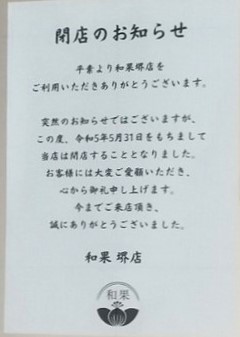 閉店のお知らせ
平素より和果堺店を
ご利用いただきありがとうございます。
突然のお知らせではございますが、
この度、令和5年5月31日をもちまして
当店は閉店することとなりました。
お客様には大変ご愛顧いただき、
心から御礼申し上げます。
今までご来店頂き、
誠にありがとうございました。
和果 堺店
和果